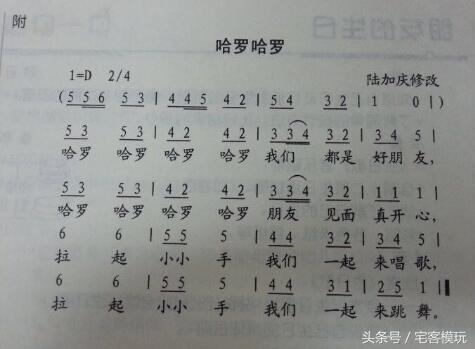 附
哈罗哈罗
1=D 2/4 陆加庆修改
(5 5 6 5 3 | 4 4 5 4 2 | 5 4 3 2 | 1 0 |)
5 3 5 3 | 4 2 4 2 | 3 3 4 3 2 | 3 4 5 |
哈罗 哈罗 哈罗 哈罗 我们 都是 好朋友,
5 3 5 3 | 4 2 4 2 | 3 3 4 3 2 | 1 1 1 |
哈罗 哈罗 哈罗 哈罗 朋友 见面 真开心,
6 6 | 5 5 5 | 4 4 3 2 | 3 4 5 |
拉 起 小小 手 我们 一起 来唱歌,
6 6 | 5 5 5 | 4 4 3 1 | 2 5 1 ‖
拉 起 小小 手 我们 一起 来跳舞。
头条号 / 宅客模玩